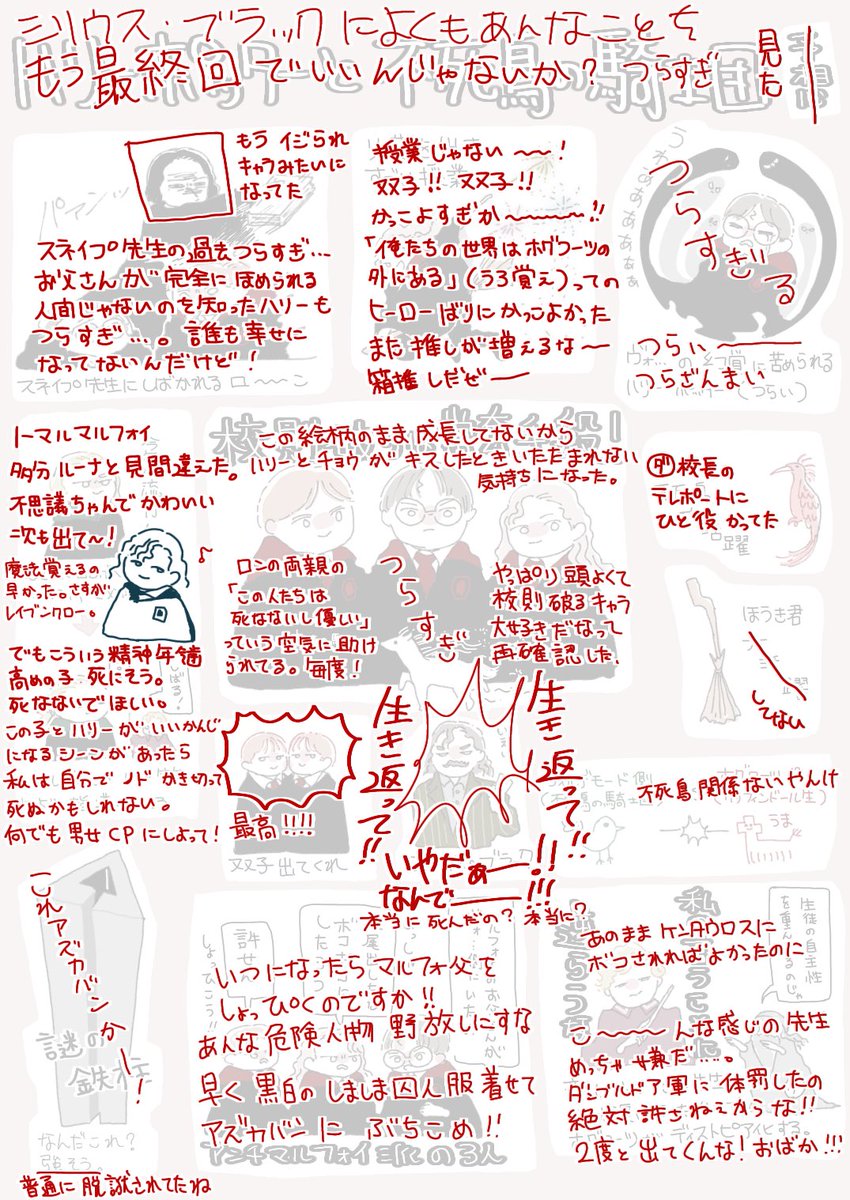 シリウス・ブラックによくもあんなことを
もう最終回でいいんじゃないか？ つらすぎ
見た
ハリー・ポッターと不死鳥の騎士団
予想
もうイジられ
キャラみたいに
なってた
パァンッ
スネイプ先生の過去つらすぎ…
お父さんが完全にほめられる
人間じゃないのを知ったハリーも
つらすぎ…。誰も幸せに
なってないんだけど！
スネイプ先生にしばかれるロ〜〜ン
授業じゃない〜〜！
双子!! 双子!!
かっこよすぎか〜〜〜〜!!
「俺たちの世界はホグワーツの
外にある」(うろ覚え)っての
ヒーローばりにかっこよかった
また推しが増えるな〜
箱推しだぜ―
つらすぎる
つらい―――
つらざんまい
の幻覚に苦められる
ハリーポッター(つらい)
トーマルマルフォイ
多分ルーナと見間違えた。
不思議ちゃんでかわいい
次も出て〜！
魔法覚えるの
早かった。さすが
レイブンクロー。
でもこういう精神年齢
高めの子 死にそう。
死なないでほしい。
この子とハリーがいいかんじ
になるシーンがあったら
私は自分でノドかき切って
死ぬかもしれない。
何でも男女CPにしよって！
この絵柄のまま成長してないから
ハリーとチョウがキスしたときいたたまれない
気持ちになった。
ロンの両親の
「この人たちは
死なないし優しい」
っていう空気に助け
られてる。毎度！
つらすぎ
やっぱり頭よくて
校則破るキャラ
大好きだなって
再確認した。
ダ校長の
テレポートに
ひと役かってた
活躍
ほうき君
活躍
してない
最高!!!!
双子出てくれ
生き返って!!
生き返って!!
いやだぁ―!!
なんで――!!!
本当に死んだの？本当に？
ブラック
不死鳥関係ないやんけ
(不死鳥の騎士団)
うま
これアズカバンかー！
謎の
鉄柱
なんだこれ？
強そう。
普通に脱獄されてたね
許せん
しょっぴこう!!
いつになったらマルフォ父を
しょっぴくのですか!!
あんな危険人物 野放しにすな
早く黒白のしましま囚人服着せて
アズカバンにぶちこめ!!
アンチマルフォイ派の3人
生徒の自主性
を重んじるのじゃ
あのままケンタウロスに
ボコされればよかったのに
こ〜〜〜んな感じの先生
めっちゃ嫌だ…。
ダンブルドア軍に体罰したの
絶対許さねえからな!!
2度と出てくんな！おばか!!!
ホグワーツがディストピアイヒする。